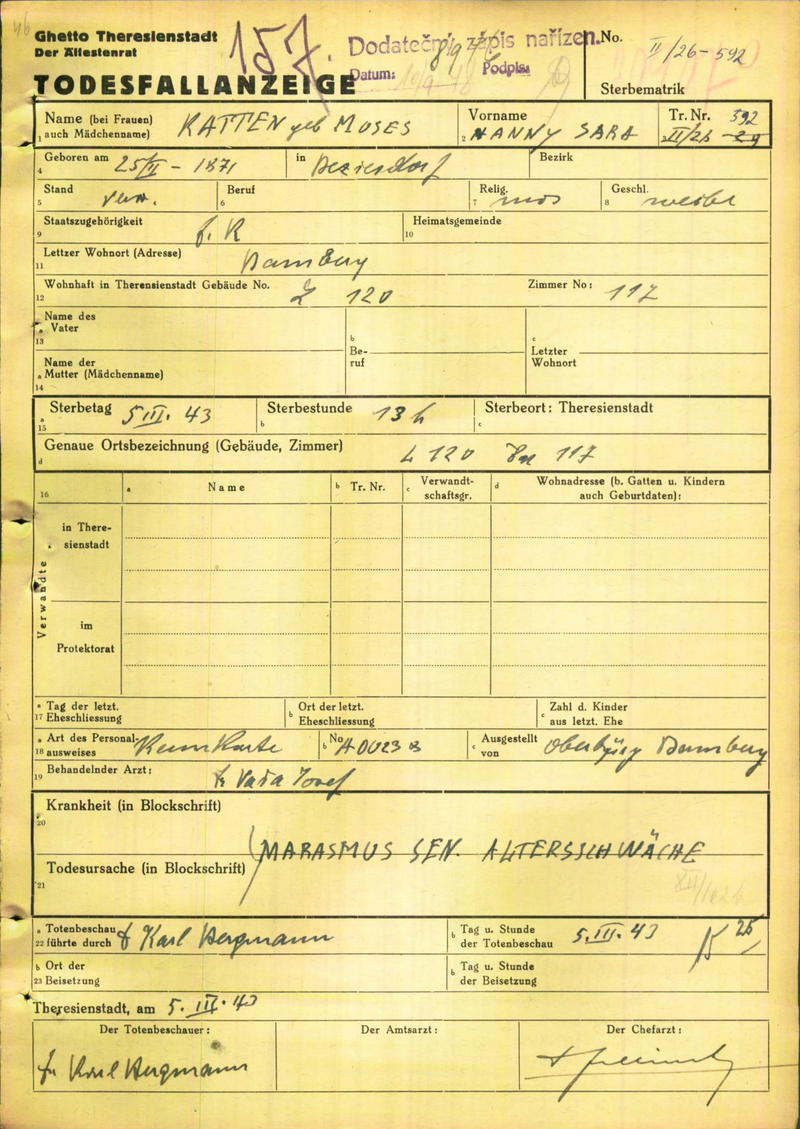 46
Ghetto Theresienstadt
Der Ältestenrat
TODESFALLANZEIGE
157.
Dodatečný zápis nařízen.
Datum: Podpis:
No. II/26-592
Sterbematrik
Name (bei Frauen) auch Mädchenname) KATTEN geb MOSES
1
Vorname NANNY SARA
2
Tr. Nr. 592
II/26 - 29
Geboren am 25/II - 1871 in
4
Bezirk
Stand verw.
5
Beruf
6
Relig. mos
7
Geschl. weibl
8
Staatszugehörigkeit
9
Heimatsgemeinde
10
Lettzer Wohnort (Adresse) Bamberg
11
Wohnhaft in Therensienstadt Gebäude No. L 120
12
Zimmer No: 117
Name des
a Vater
13
Name der
a Mutter (Mädchenname)
14
b
Be-
ruf
c
Letzter
Wohnort
a Sterbetag 5 III. 43
15
b Sterbestunde 13 h
c Sterbeort: Theresienstadt
d Genaue Ortsbezeichnung (Gebäude, Zimmer) L 120 117
16
a Name
b Tr. Nr.
c Verwandt-
schaftsgr.
d Wohnadresse (b. Gatten u. Kindern
auch Geburtdaten):
Verwandte
in There-
sienstadt
im
Protektorat
a Tag der letzt.
17 Eheschliessung
b Ort der letzt.
Eheschliessung
c Zahl d. Kinder
aus letzt. Ehe
a Art des Personal-
18 ausweises Kennkarte
b No A 0023
c Ausgestellt
von Bamberg
19 Behandelnder Arzt:
Krankheit (in Blockschrift)
20
MARASMUS SEN. ALTERSSCHWÄCHE
Todesursache (in Blockschrift)
21
a Totenbeschau
22 führte durch Karl Bergmann
b Tag u. Stunde
der Totenbeschau 5. III. 43
b Ort der
23 Beisetzung
b Tag u. Stunde
der Beisetzung
Theresienstadt, am 5. III. 43
Der Totenbeschauer:
Der Amtsarzt:
Der Chefarzt:
Karl Bergmann